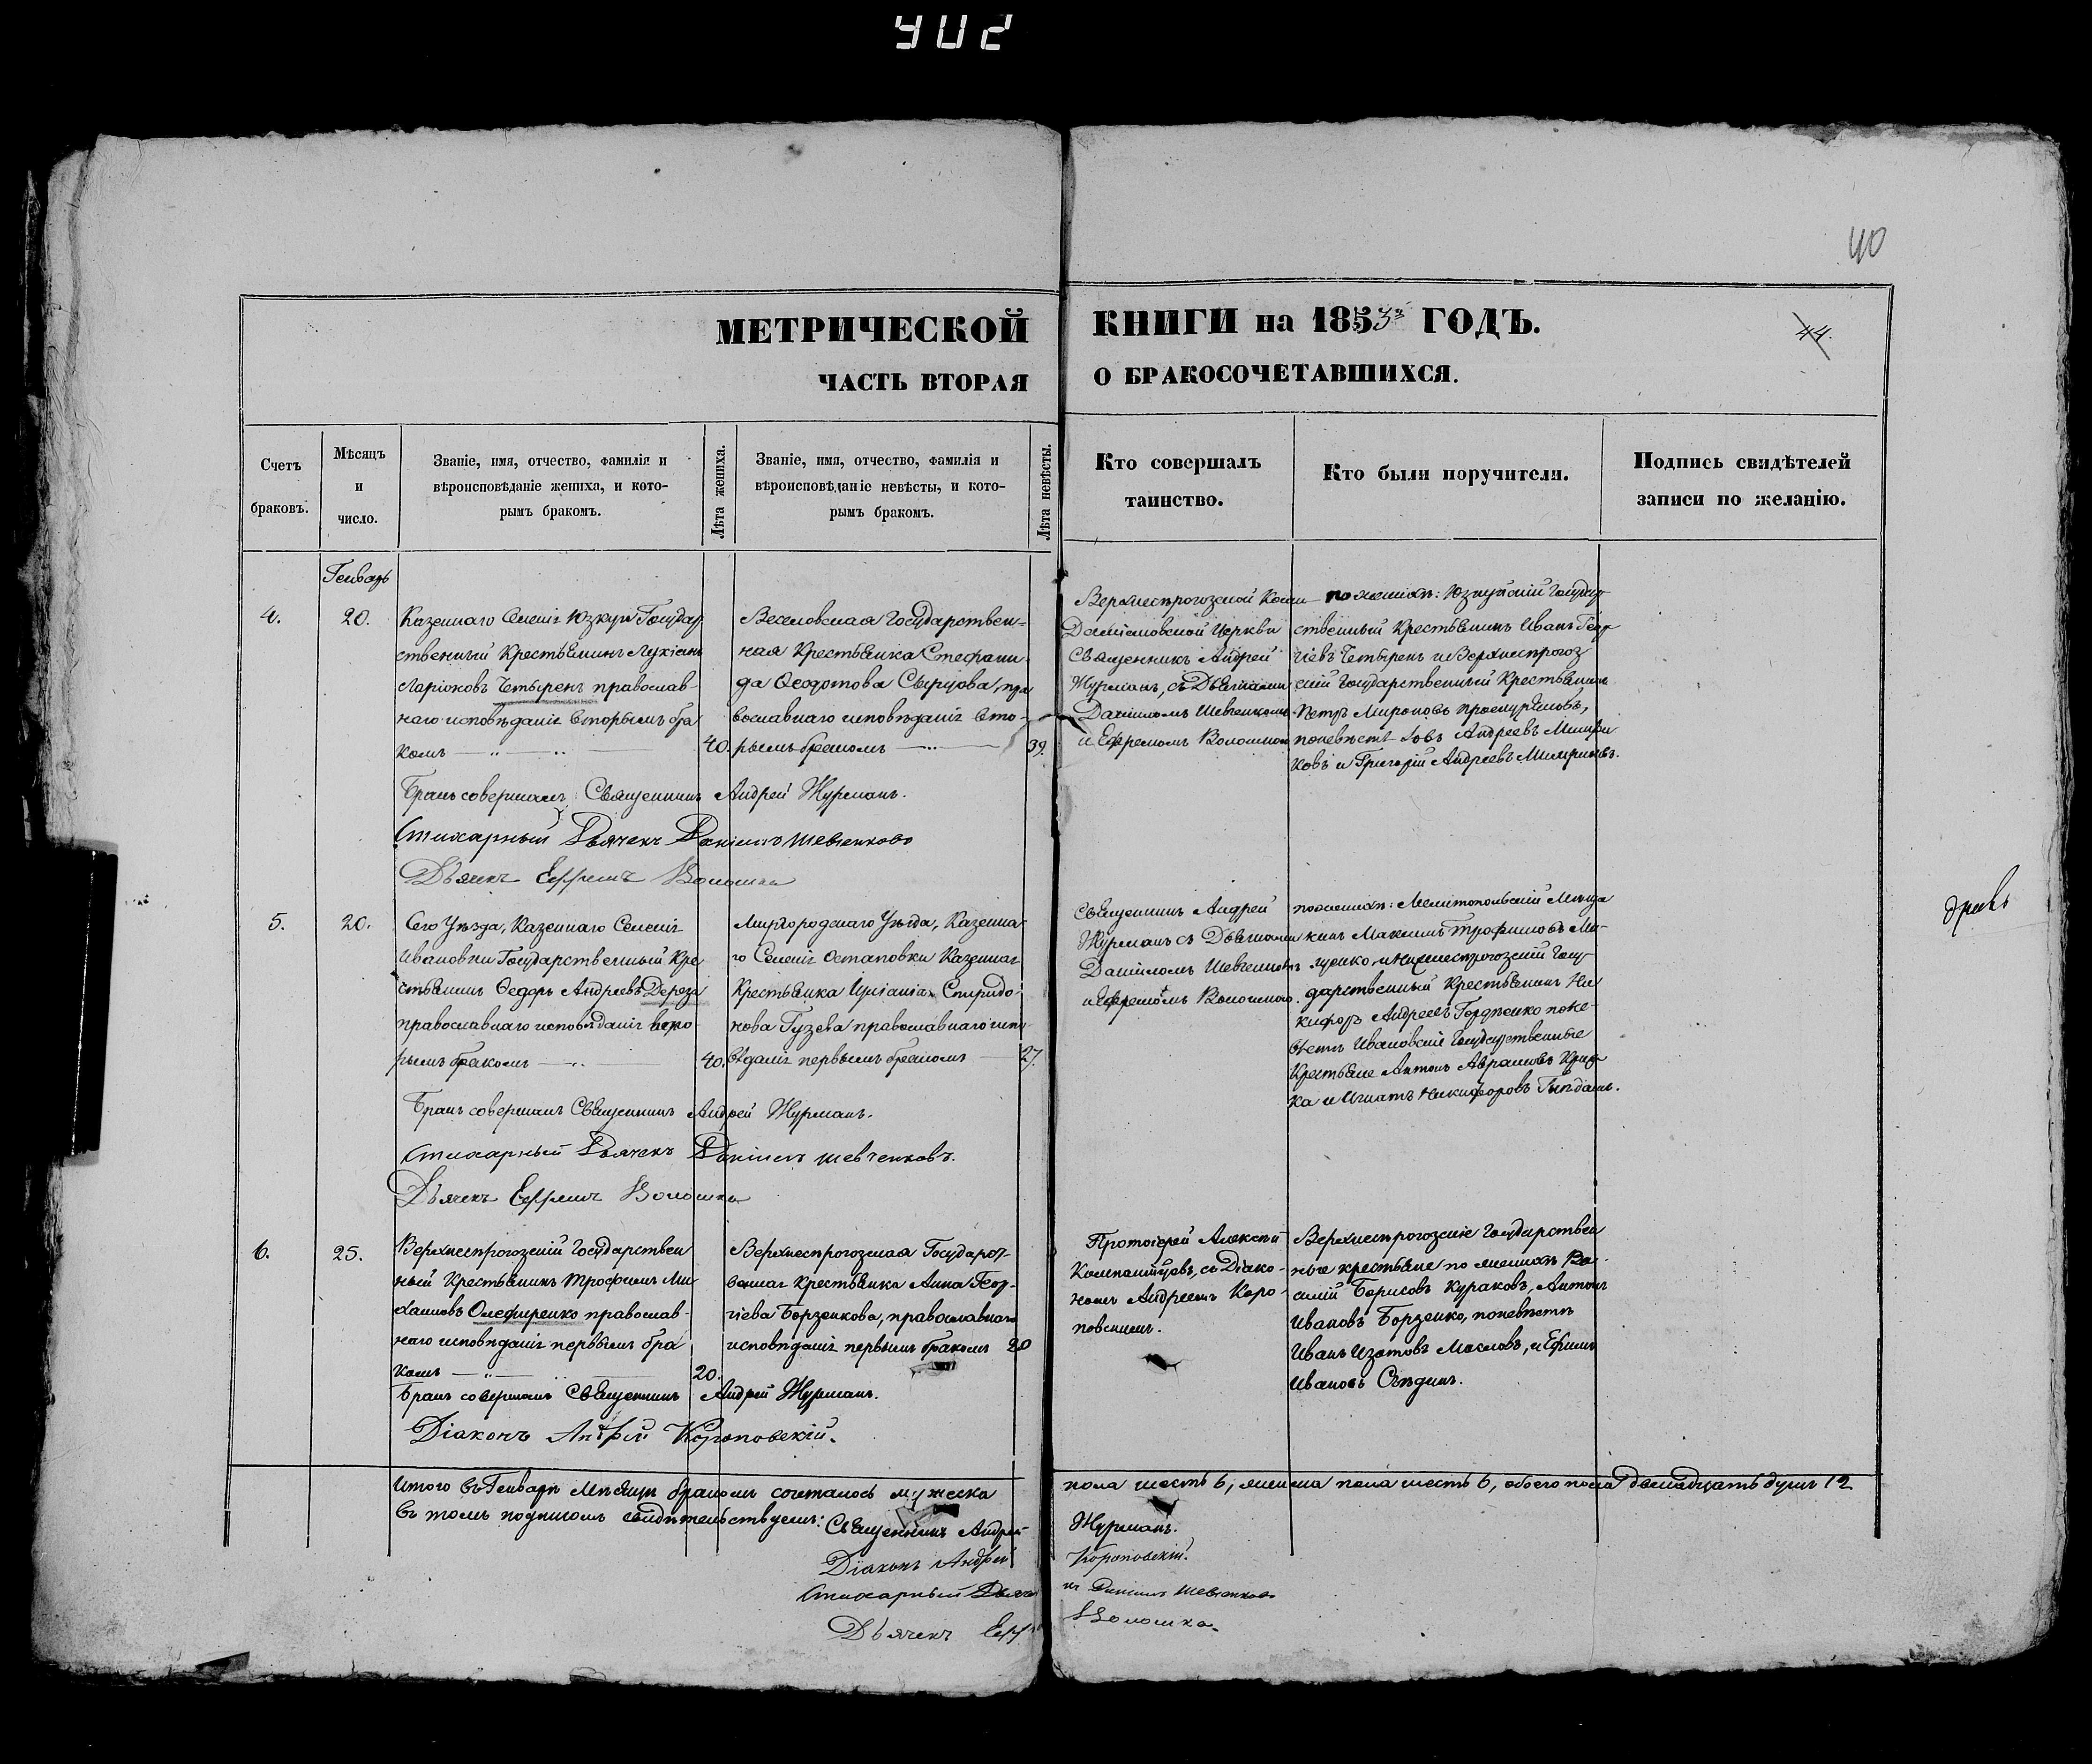 902
40
МЕТРИЧЕСКОЙ КНИГИ на 1853 ГОДЪ.
44.
ЧАСТЬ ВТОРАЯ О БРАКОСОЧЕТАВШИХСЯ.
Счетъ браковъ.
Мѣсяцъ и число.
Званіе, имя, отчество, фамилія и
вѣроисповѣданіе жениха, и кото-
рымъ бракомъ.
Лѣта жениха.
Званіе, имя, отчество, фамилія и
вѣроисповѣданіе невѣсты, и кото-
рымъ бракомъ.
Лѣта невѣсты.
Кто совершалъ
таинство.
Кто были поручители.
Подпись свидѣтелей
записи по желанію.
Генварь
4.
20.
Казеннаго Селенія Юзкуи Государ
ственный Крестьянинъ Лукіянъ
Ларіоновъ Четыренъ православ-
наго исповѣданія вторымъ бра
комъ
40.
Веселовская Государствен-
ная Крестьянка Стефани-
да Ѳеодотова Сырцова, пра
вославнаго исповѣданія вто-
рымъ бракомъ
39.
Верхнерогозской
Церкви
Священникъ Андрей
Журманъ, съ Дьячками
Даніиломъ Шевченкомъ
и Ефремомъ Волошкою
по женихѣ: Юзкуйскій Государ
ственный Крестьянинъ Иванъ Геор
гіевъ Четыренъ и Верхнерогоз
скій Государственный Крестьянинъ
Петръ Мироновъ
по невѣстѣ Іовъ Андреевъ
ковъ и Григорій Андреевъ
Бракъ совершалъ: Священникъ Андрей Журманъ.
Стихарный Дьячекъ Даніилъ Шевченковъ
Дьячекъ Ефремъ Волошка
5.
20.
Сего Уѣзда, Казеннаго Селенія
Ивановки Государственный Кре
стьянинъ Ѳедоръ Андреевъ Дереза
православнаго исповѣданія вто-
рымъ бракомъ
40.
Миргородскаго Уѣзда, Казенна-
го Селенія Остаповки Казенная
Крестьянка Спиридо-
нова Гузева православнаго испо
вѣданія первымъ бракомъ
27.
Священникъ Андрей
Журманъ съ Дьячками
Даніиломъ Шевченковымъ
и Ефремомъ Волошкою.
по женихѣ: Мелитопольскій Мѣща
нинъ Максимъ Трофимовъ
Госу-
дарственный Крестьянинъ Ни
кифоръ Андреевъ Гордіенко по не-
вѣстѣ Ивановскіе Государственные
Крестьяне Антонъ Абрамовъ
ка и Игнатъ Никифоровъ
Бракъ совершалъ Священникъ Андрей Журманъ.
Стихарный Дьячекъ Даніилъ Шевченковъ.
Дьячекъ Ефремъ Волошка
6.
25.
Верхнерогозскій Государствен
ный Крестьянинъ Трофимъ Ми
хаиловъ Олефиренко православ-
наго исповѣданія первымъ бра
комъ
20.
Верхнерогозская Государст-
венная Крестьянка Анна Геор-
гіева Борзенкова, православнаго
исповѣданія первымъ бракомъ
20
Протоіерей Алексѣй
съ Діако-
номъ Андреемъ Коро-
повскимъ.
Верхнерогозскіе Государствен
ные крестьяне по женихѣ Ва-
силій Борисовъ Кураковъ, Антонъ
Ивановъ Борзенко, по невѣстѣ
Иванъ Изотовъ Масловъ, и Ефимъ
Ивановъ
Бракъ совершалъ Священникъ Андрей Журманъ.
Діаконъ Андрей Короповскій.
Итого въ Генварѣ Мѣсяцѣ бракомъ сочеталось мужеска пола шесть 6, женска пола шесть 6, обоего пола двенадцать душъ 12
въ томъ подписомъ свидѣтельствуемъ: Священникъ Андрей Журманъ.
Діаконъ Андрей Короповскій.
Стихарный Дьячекъ Даніилъ Шевченковъ
Дьячекъ Ефр Волошка.